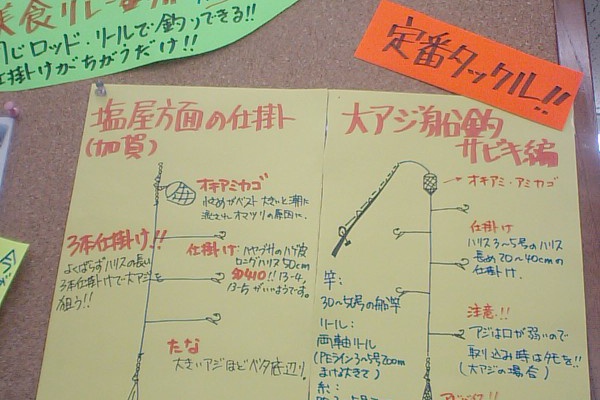 美食リレー
同じロッド・リールで釣りできる!!
仕掛けがちがうだけ!!
定番タックル!!
塩屋方面の仕掛
(加賀)
オキアミカゴ
小さめがベスト 大きいと潮に
流され、オマツリの原因に。
3本仕掛け!!
よくばらずハリスの長い
3本仕掛けで大アジを
狙う!!
仕掛け:
ロングハリス50cm
13-4,
13-5がいいようです。
たな
大きいアジほどベタ底辺り。
大アジ船釣
サビキ編
オキアミ・アミカゴ
仕掛け
ハリス3~5号のハリス
長め20~40cmの
仕掛け.
竿:
30~50号の船竿
リール:
両軸リール
(PEライン3~5号200m
まける大きさ)
糸:
注意!!
アジは口が弱いので
取り込み時はタモを!!
(大アジの場合)